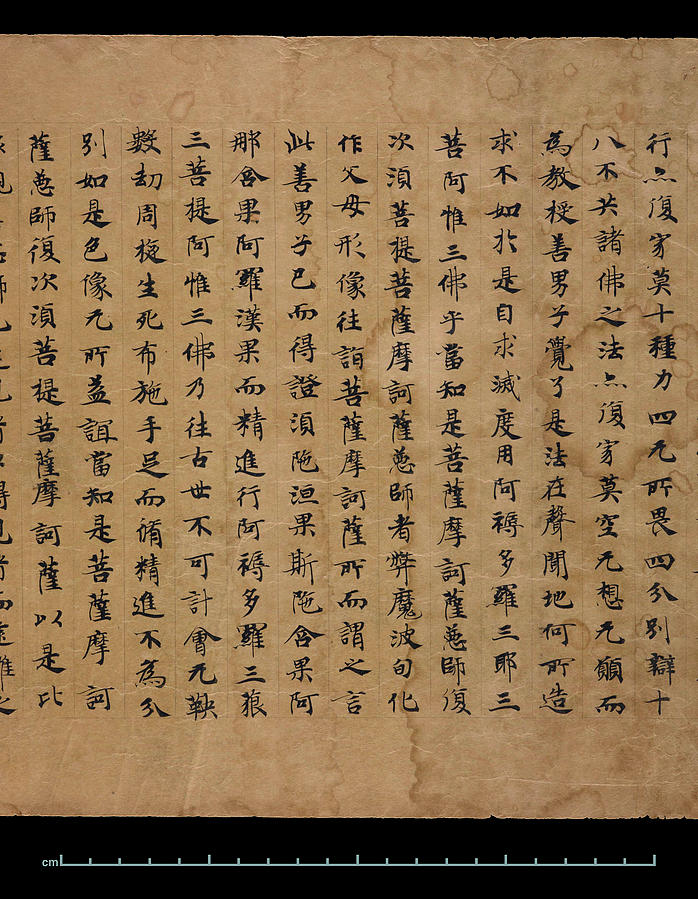 行亦復家莫十種力四无所畏四分別辯十
八不共諸佛之法亦復家莫空无想无願而
為教授善男子覺了是法在聲聞地何所造
求不如於是自求滅度用阿耨多羅三耶三
菩阿惟三佛乎當知是菩薩摩訶薩惡師復
次須菩提菩薩摩訶薩惡師者弊魔波旬化
作父母形像往詣菩薩摩訶薩所而謂之言
此善男子已而得證須陁洹果斯陁含果阿
那含果阿羅漢果而精進行阿耨多羅三狼
三菩提阿惟三佛乃往古世不可計會无鞅
數劫周旋生死布施手足而脩精進不為分
別如是色像无所益誼當知是菩薩摩訶
薩惡師復次須菩提菩薩摩訶薩以是比
cm